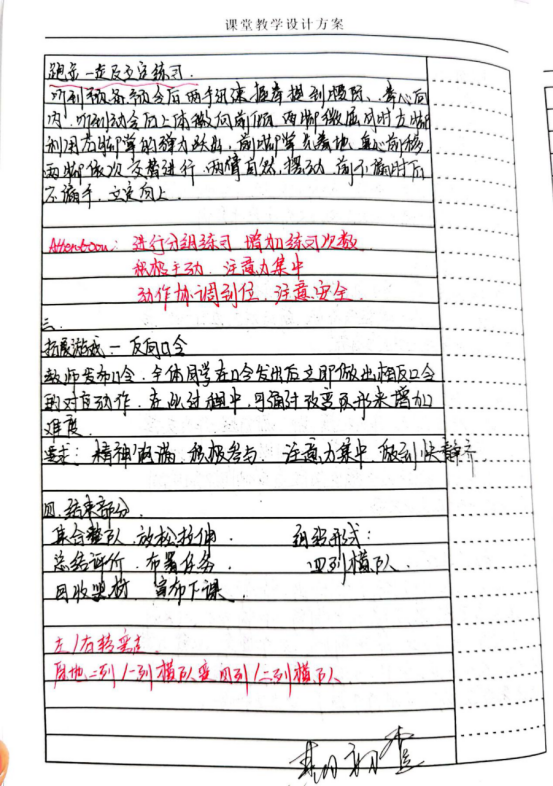 课堂教学设计方案
跑步一走及立定练习.
听到预备口令后两手迅速握拳提到腰际、拳心向
内,听到动令后上体微向前倾,两脚微屈同时左脚
利用右脚掌的弹力跃出,前脚掌先着地,重心前移
两脚依次交替进行,两臂自然摆动,前不露肘后
不露手,立定同上.
Attention: 进行分组练习 增加练习次数
积极主动 注意力集中
动作协调到位,注意安全
三.
拓展游戏一 反向口令
教师发布口令.全体同学在口令发出后立即做出相反口令
的对应动作.在此过程中,可通过改变队形来增加
难度.
要求: 精神饱满 积极参与. 注意力集中 做到快静齐
四.结束部分.
集合整队 放松拉伸. 组织形式:
总结评价.布置任务. 四列横队.
回收器材 宣布下课.
左/右转弯走
原地二列/一列横队变四列/二列横队